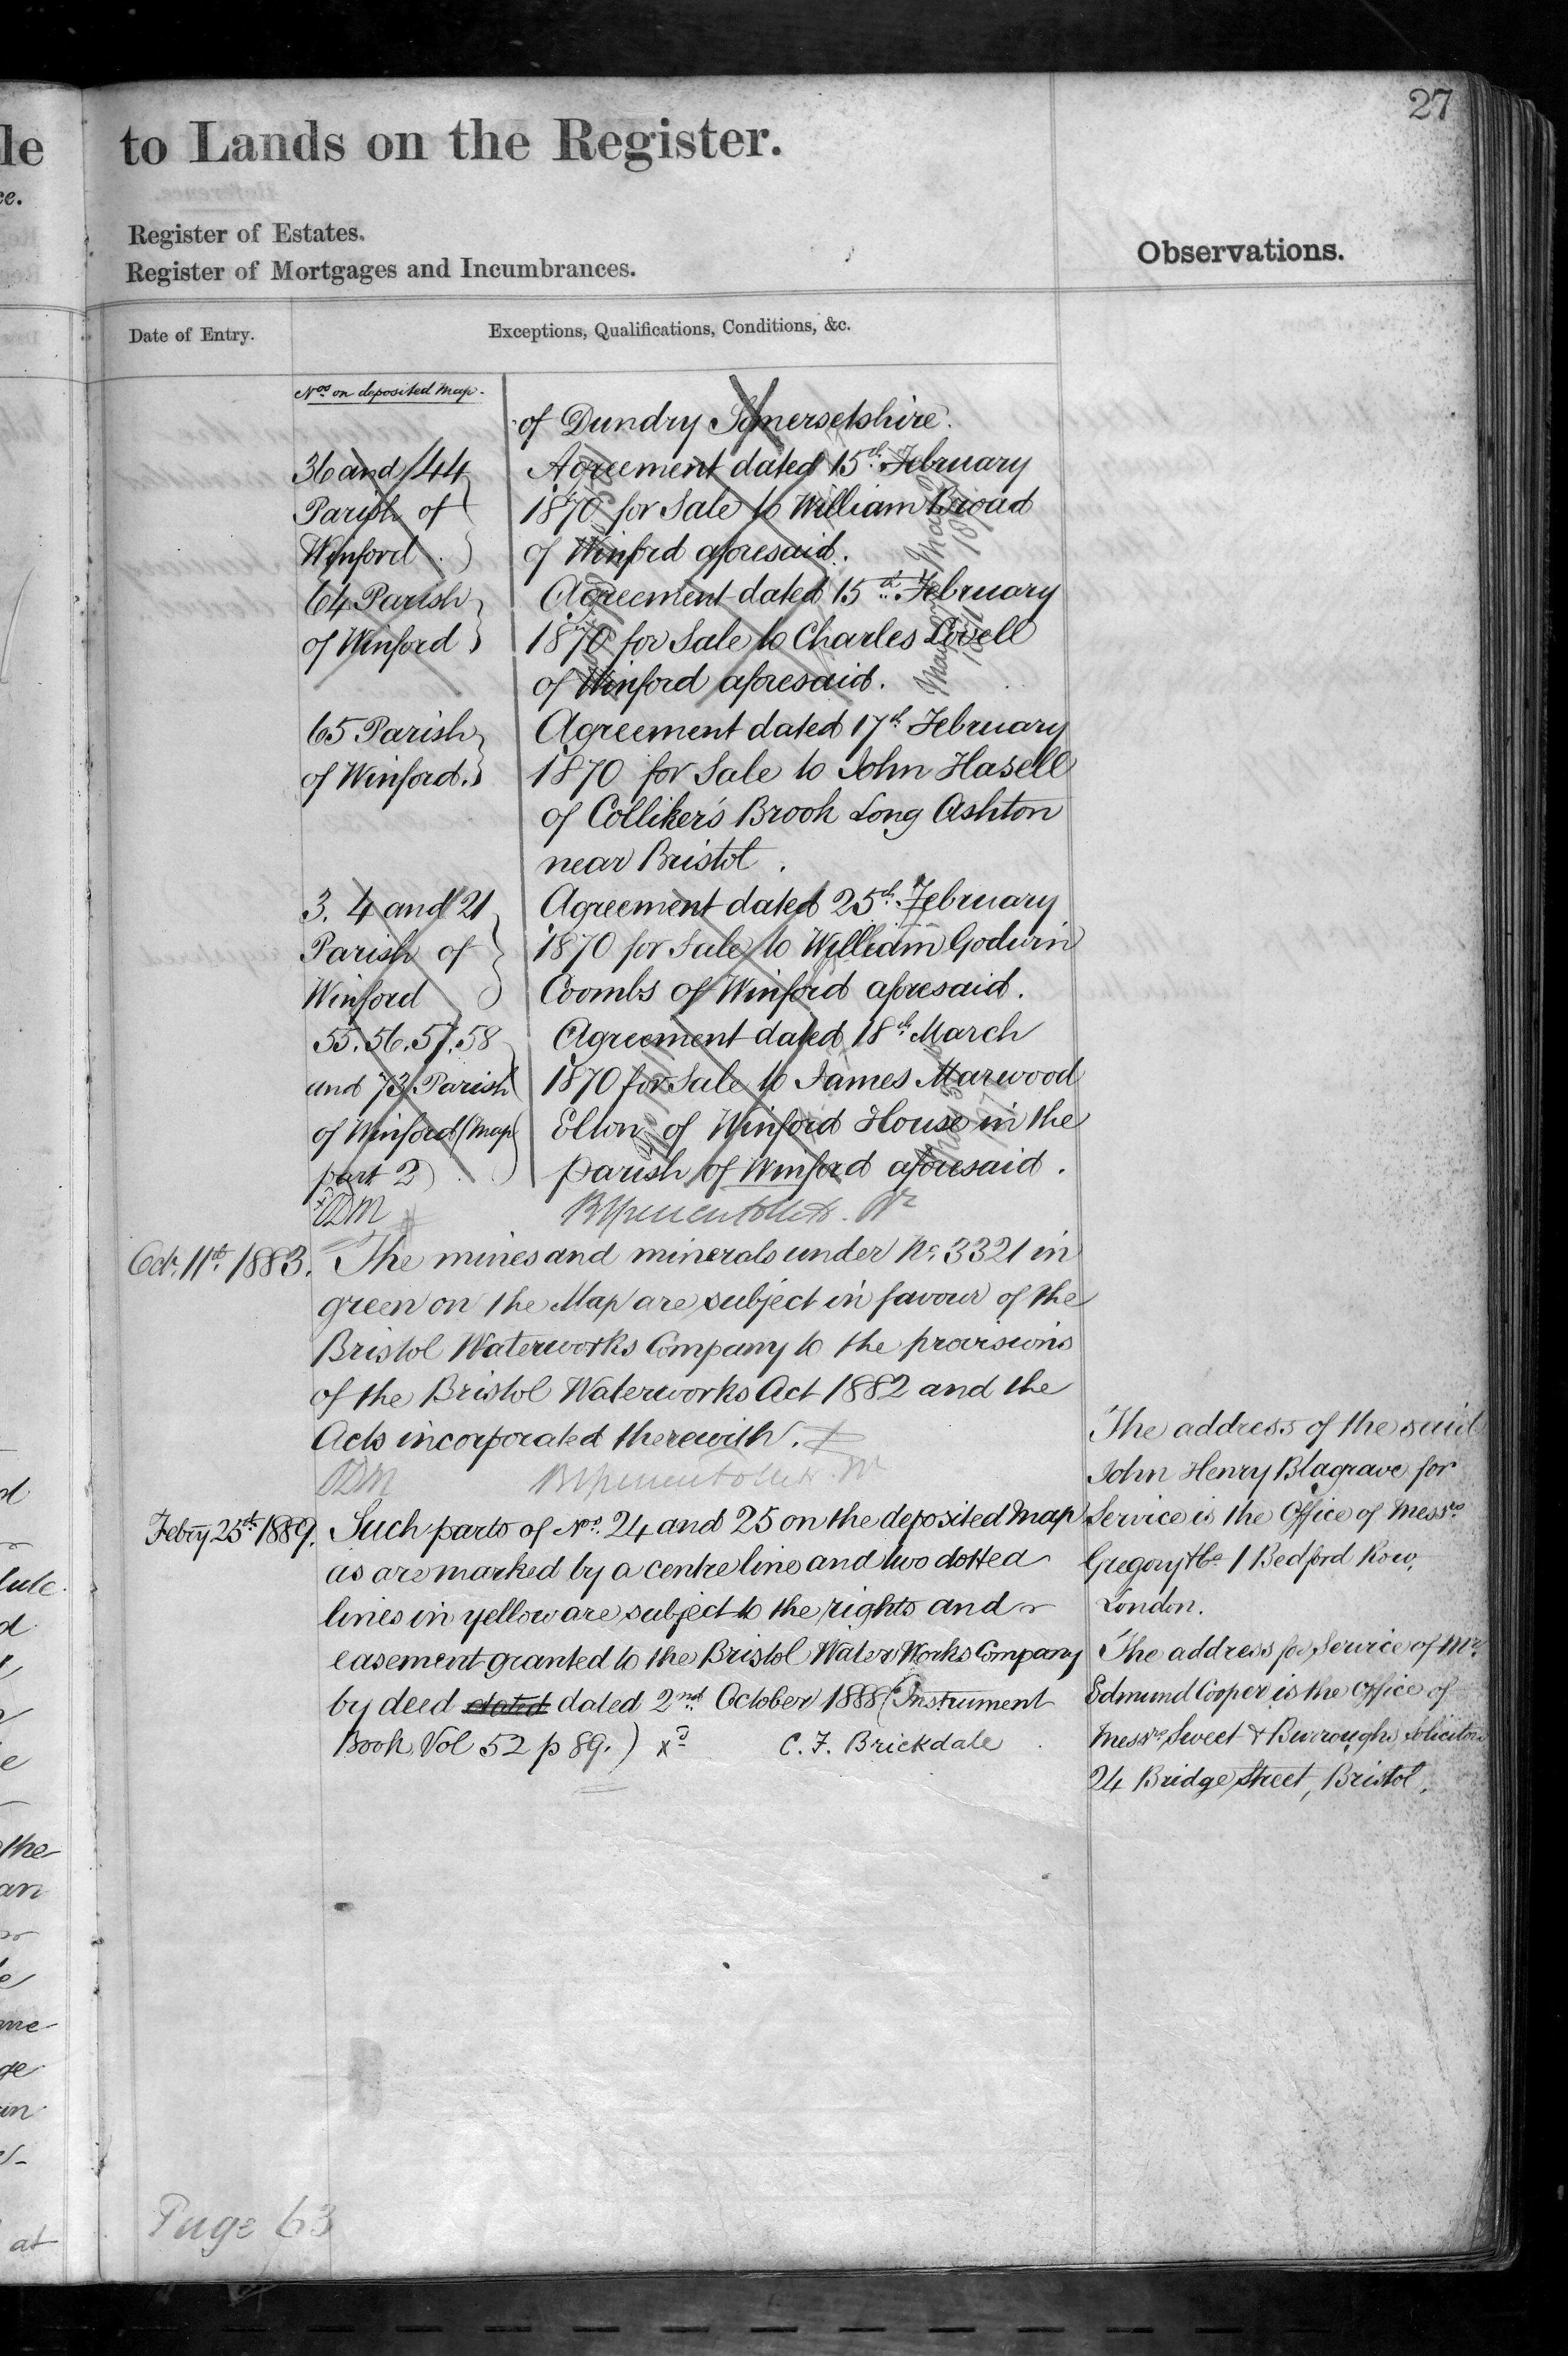 27
to Lands on the Register.
Register of Estates.
Register of Mortgages and Incumbrances.
Observations.
Date of Entry.
Exceptions, Qualifications, Conditions, &c.
Nos on deposited Map.
of Dundry Somersetshire.
36 and 144 Agreement dated 15th February
Parish of 1870 for Sale to William Broad
Winford of Winford aforesaid.
64 Parish Agreement dated 15th February
of Winford 1870 for Sale to Charles Lovell
of Winford aforesaid.
65 Parish Agreement dated 17th February
of Winford. 1870 for Sale to John Hasell
of Colliker's Brook Long Ashton
near Bristol.
3. 4 and 21 Agreement dated 25th February
Parish of 1870 for Sale to William Godwin
Winford Coombs of Winford aforesaid.
55. 56. 57. 58 Agreement dated 18th March
and 73 Parish 1870 for Sale to James Marwood
of Winford (Map Elton of Winford House in the
part 2) parish of Winford aforesaid.
Octr. 11th 1883. The mines and minerals under No. 3321 in
green on the Map are subject in favour of the
Bristol Waterworks Company to the provisions
of the Bristol Waterworks Act 1882 and the
Acts incorporated therewith.
Febry 25th 1889. Such parts of Nos. 24 and 25 on the deposited Map
as are marked by a centre line and two dotted
lines in yellow are subject to the rights and
easement granted to the Bristol Water Works Company
by deed dated dated 2nd October 1888 (Instrument
Book Vol 52 p 89.) xd C. F. Brickdale
The address of the said
John Henry Blagrave for
Service is the Office of Messrs
Gregory & Co 1 Bedford Row,
London.
The address for Service of Mr.
Edmund Cooper is the Office of
Messrs Sweet & Burroughs Solicitors
24 Bridge Street, Bristol.
Page 63